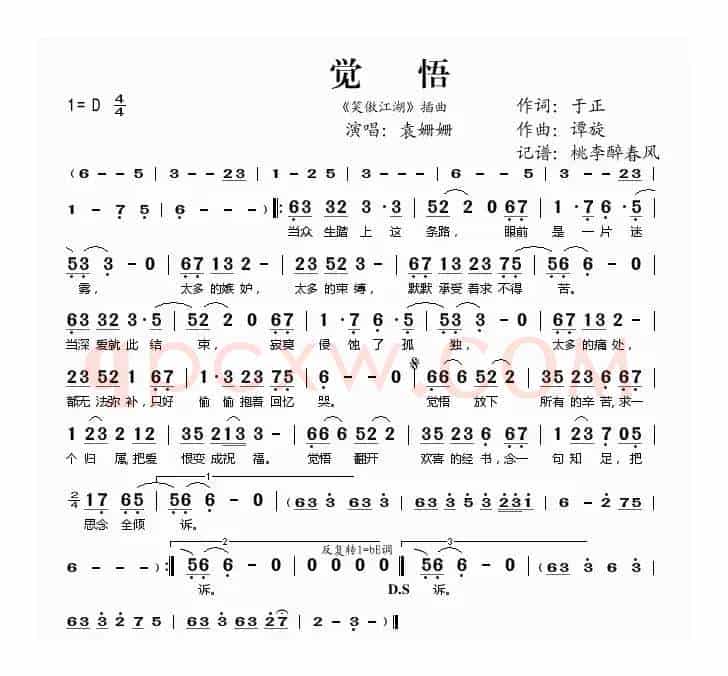 觉 悟
1= D 4/4
《笑傲江湖》插曲
作词：于正
演唱：袁姗姗
作曲：谭旋
记谱：桃李醉春风
( 6 - - 5 | 3 - - 23 | 1 - 2 5 | 3 - - - | 6 - - 5 | 3 - - 23 |
1 - 7 5 | 6 - - - ) ‖: 63 32 3 · 3 | 52 2 0 67 | 1 · 7 6 · 5 |
当众 生踏 上 这 条路， 眼前 是 一 片 迷
53 3 - 0 | 67 13 2 - | 67 13 2 - | 67 13 23 75 | 56 6 - 0 |
雾， 太多 的嫉 妒， 太多 的束 缚， 默默 承受 着求 不得 苦。
63 32 3 · 5 | 52 2 0 67 | 1 · 7 6 · 5 | 53 3 - 0 | 67 13 2 - |
当深 爱就 此 结 束， 寂寞 侵 蚀 了 孤 独， 太多 的痛 处，
23 52 1 · 2 | 67 13 23 75 | 56 6 - 0 | 66 6 52 2 | 35 23 6 67 |
都无 法弥 补，只好 偷偷 抱着 回忆 哭。 觉悟 放下 所有 的辛 苦，求一
1 23 2 12 | 35 213 3 - | 66 6 52 2 | 35 23 6 67 | 1 23 7 05 |
个 归属，把爱 恨变 成祝 福。 觉悟 翻开 欢喜 的经 书，念一 句 知 足，把
2/4 17 65 | 56 6 - 0 | ( 63 3 63 3 | 63 5 3 5 231 | 6 - 2 75 |
1
思念 全倾 诉。
6 - - - ) :‖ 56 6 - 0 | 0 0 0 0 ‖ 56 6 - 0 | ( 63 3 6 3 |
2
反复转1=bE调
3
诉。 D.S 诉。
63 3 2 75 | 63 3 63 27 | 2 - 3 - ) ‖
qpcxw.COM